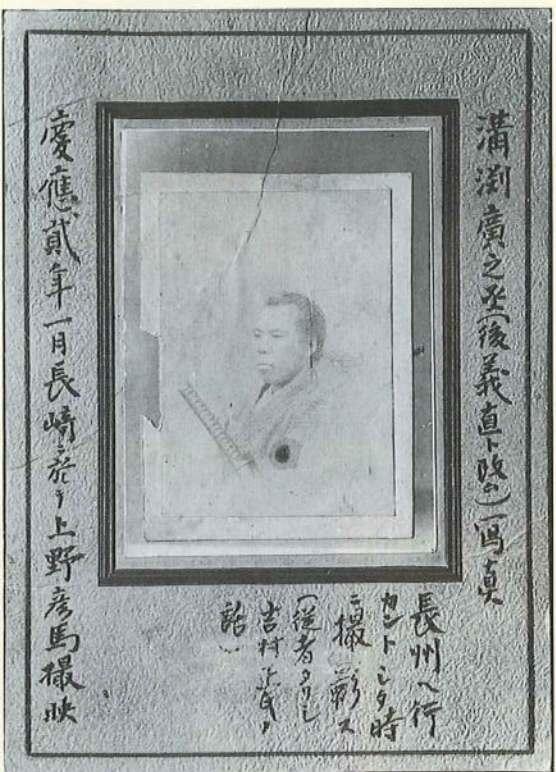 溝渕廣之丞（後義直ト改ム）冩真
長州へ行
カントシタ時
ニ撮影ス
（従者タリシ
吉村
話）
慶應貳年一月長崎ニ於テ上野彦馬撮映